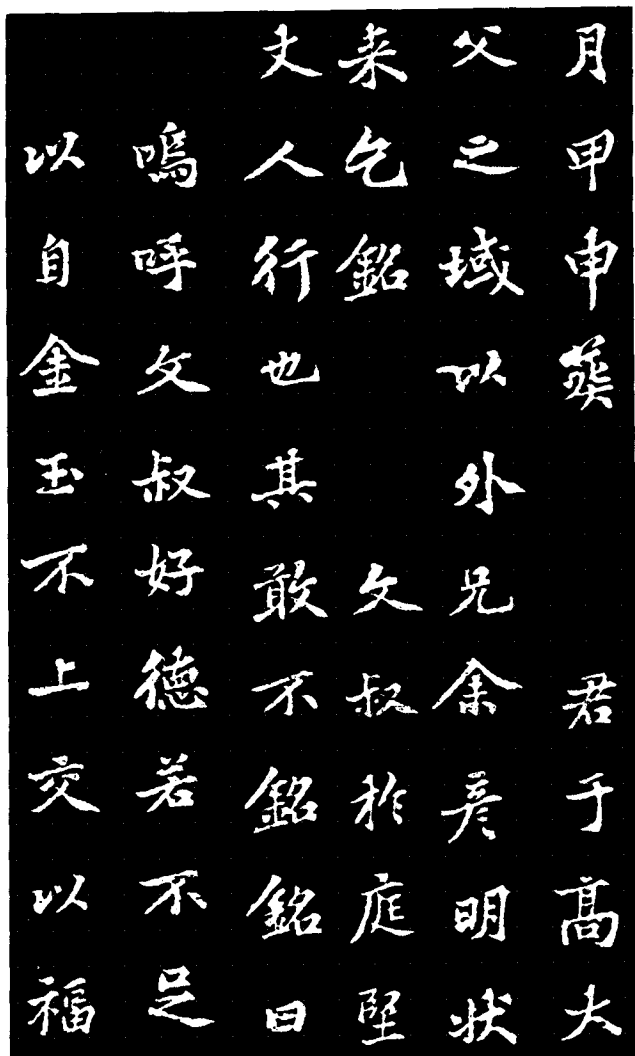 月甲申葬君于高大
父之域以外兄余彦明狀
来乞銘文叔於庭堅
丈人行也其敢不銘銘曰
嗚呼文叔好德若不足
以自金玉不上交以福